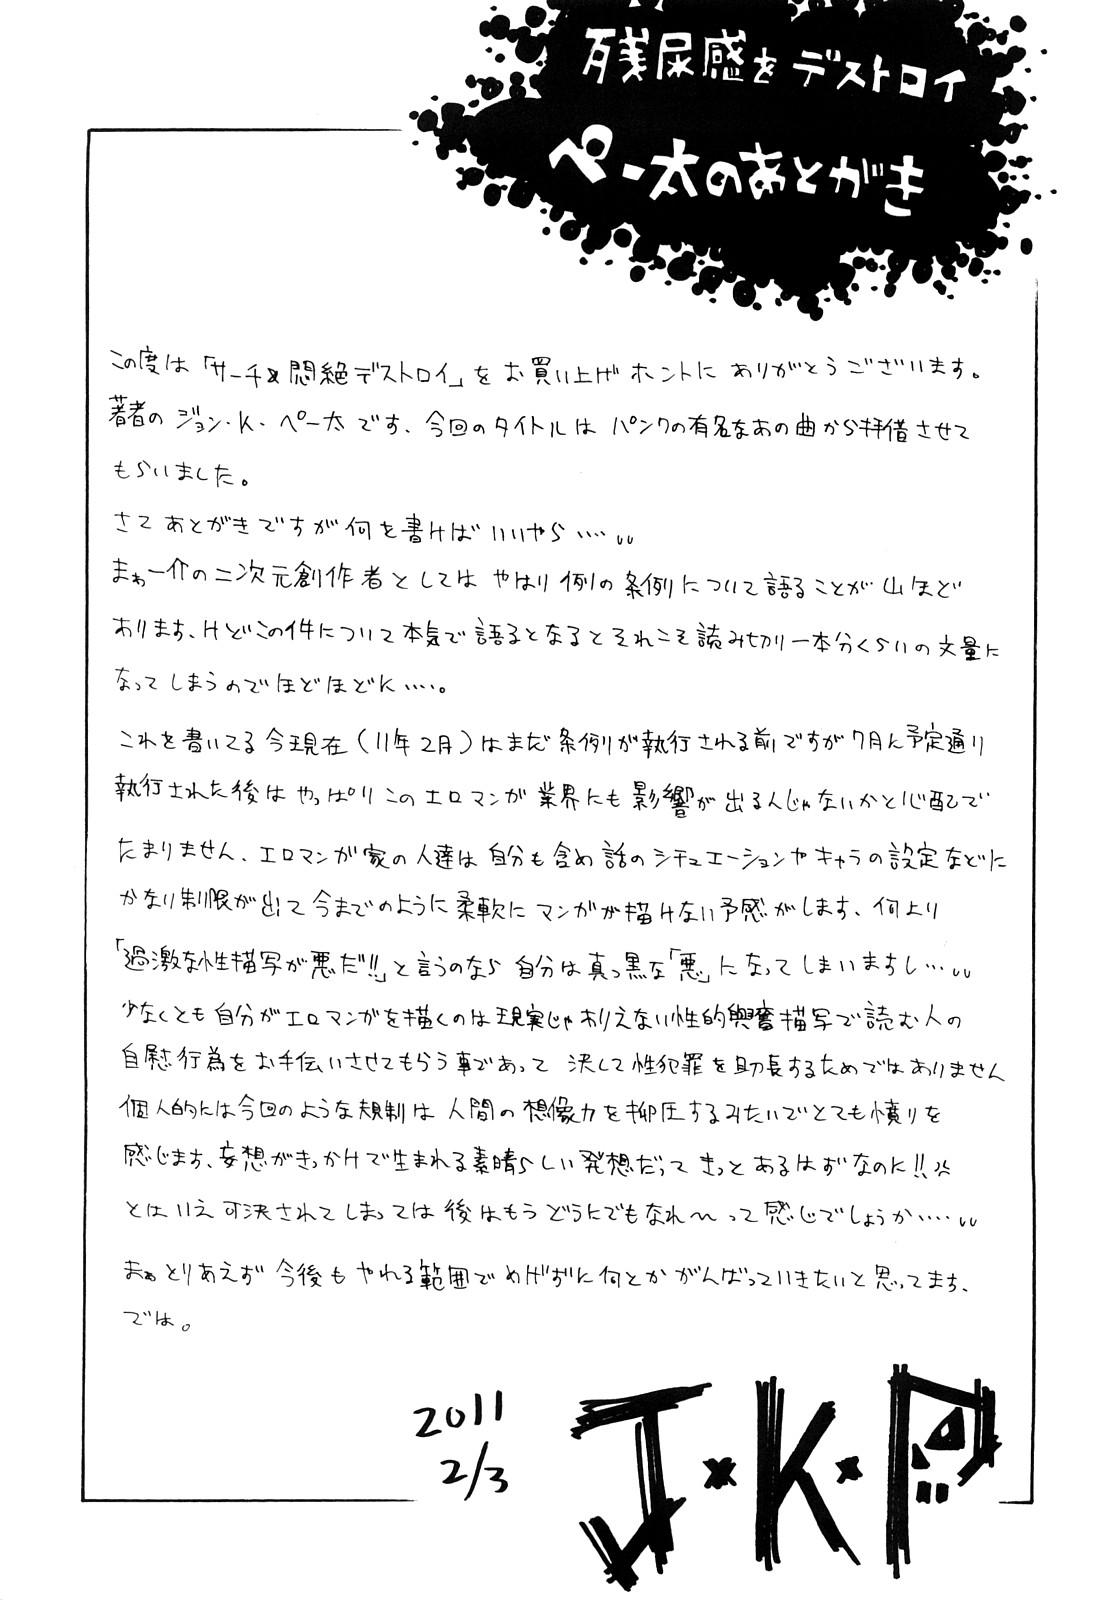 残尿感をデストロイ
ペー太のあとがき
この度は「サーチ&悶絶デストロイ」をお買い上げホントにありがとうございます。
著者のジョン・K・ペー太です、今回のタイトルはパンクの有名なあの曲から拝借させて
もらいました。
さてあとがきですが何を書けばいいやら‥‥
まぁ一介の二次元創作者としてはやはり例の条例について語ることが山ほど
あります、けどこの件について本気で語るとなるとそれこそ読み切り一本分くらいの文量に
なってしまうのでほどほどに‥‥。
これを書いてる今現在(11年2月)はまだ条例が執行される前ですが7月に予定通り
執行された後はやっぱりこのエロマンガ業界にも影響が出るんじゃないかと心配で
たまりません、エロマンガ家の人達は自分も含め話のシチュエーションやキャラの設定などに
かなり制限が出て今までのように柔軟にマンガが描けない予感がします、何より
「過激な性描写が悪だ!!」と言うのなら自分は真っ黒な「悪」になってしまいますし‥‥
少なくとも自分がエロマンガを描くのは現実じゃありえない性的興奮描写で読む人の
自慰行為をお手伝いさせてもらう事であって決して性犯罪を助長するためではありません
個人的には今回のような規制は人間の想像力を抑圧するみたいでとても憤りを
感じます、妄想がきっかけで生まれる素晴らしい発想だってきっとあるはずなのに!!
とはいえ可決されてしまっては後はもうどうにでもなれ〜って感じでしょうか‥‥
まぁとりあえず今後もやれる範囲でめげずに何とかがんばっていきたいと思ってます、
では。
2011
2/3
J・K・P